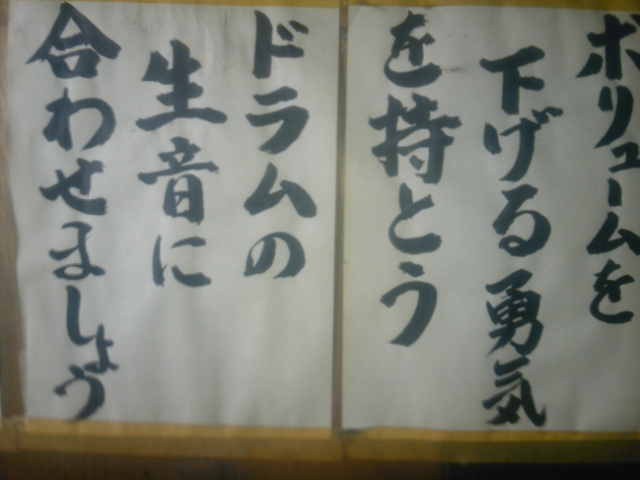 ボリュームを
下げる勇気
を持とう
ドラムの
生音に
合わせましょう